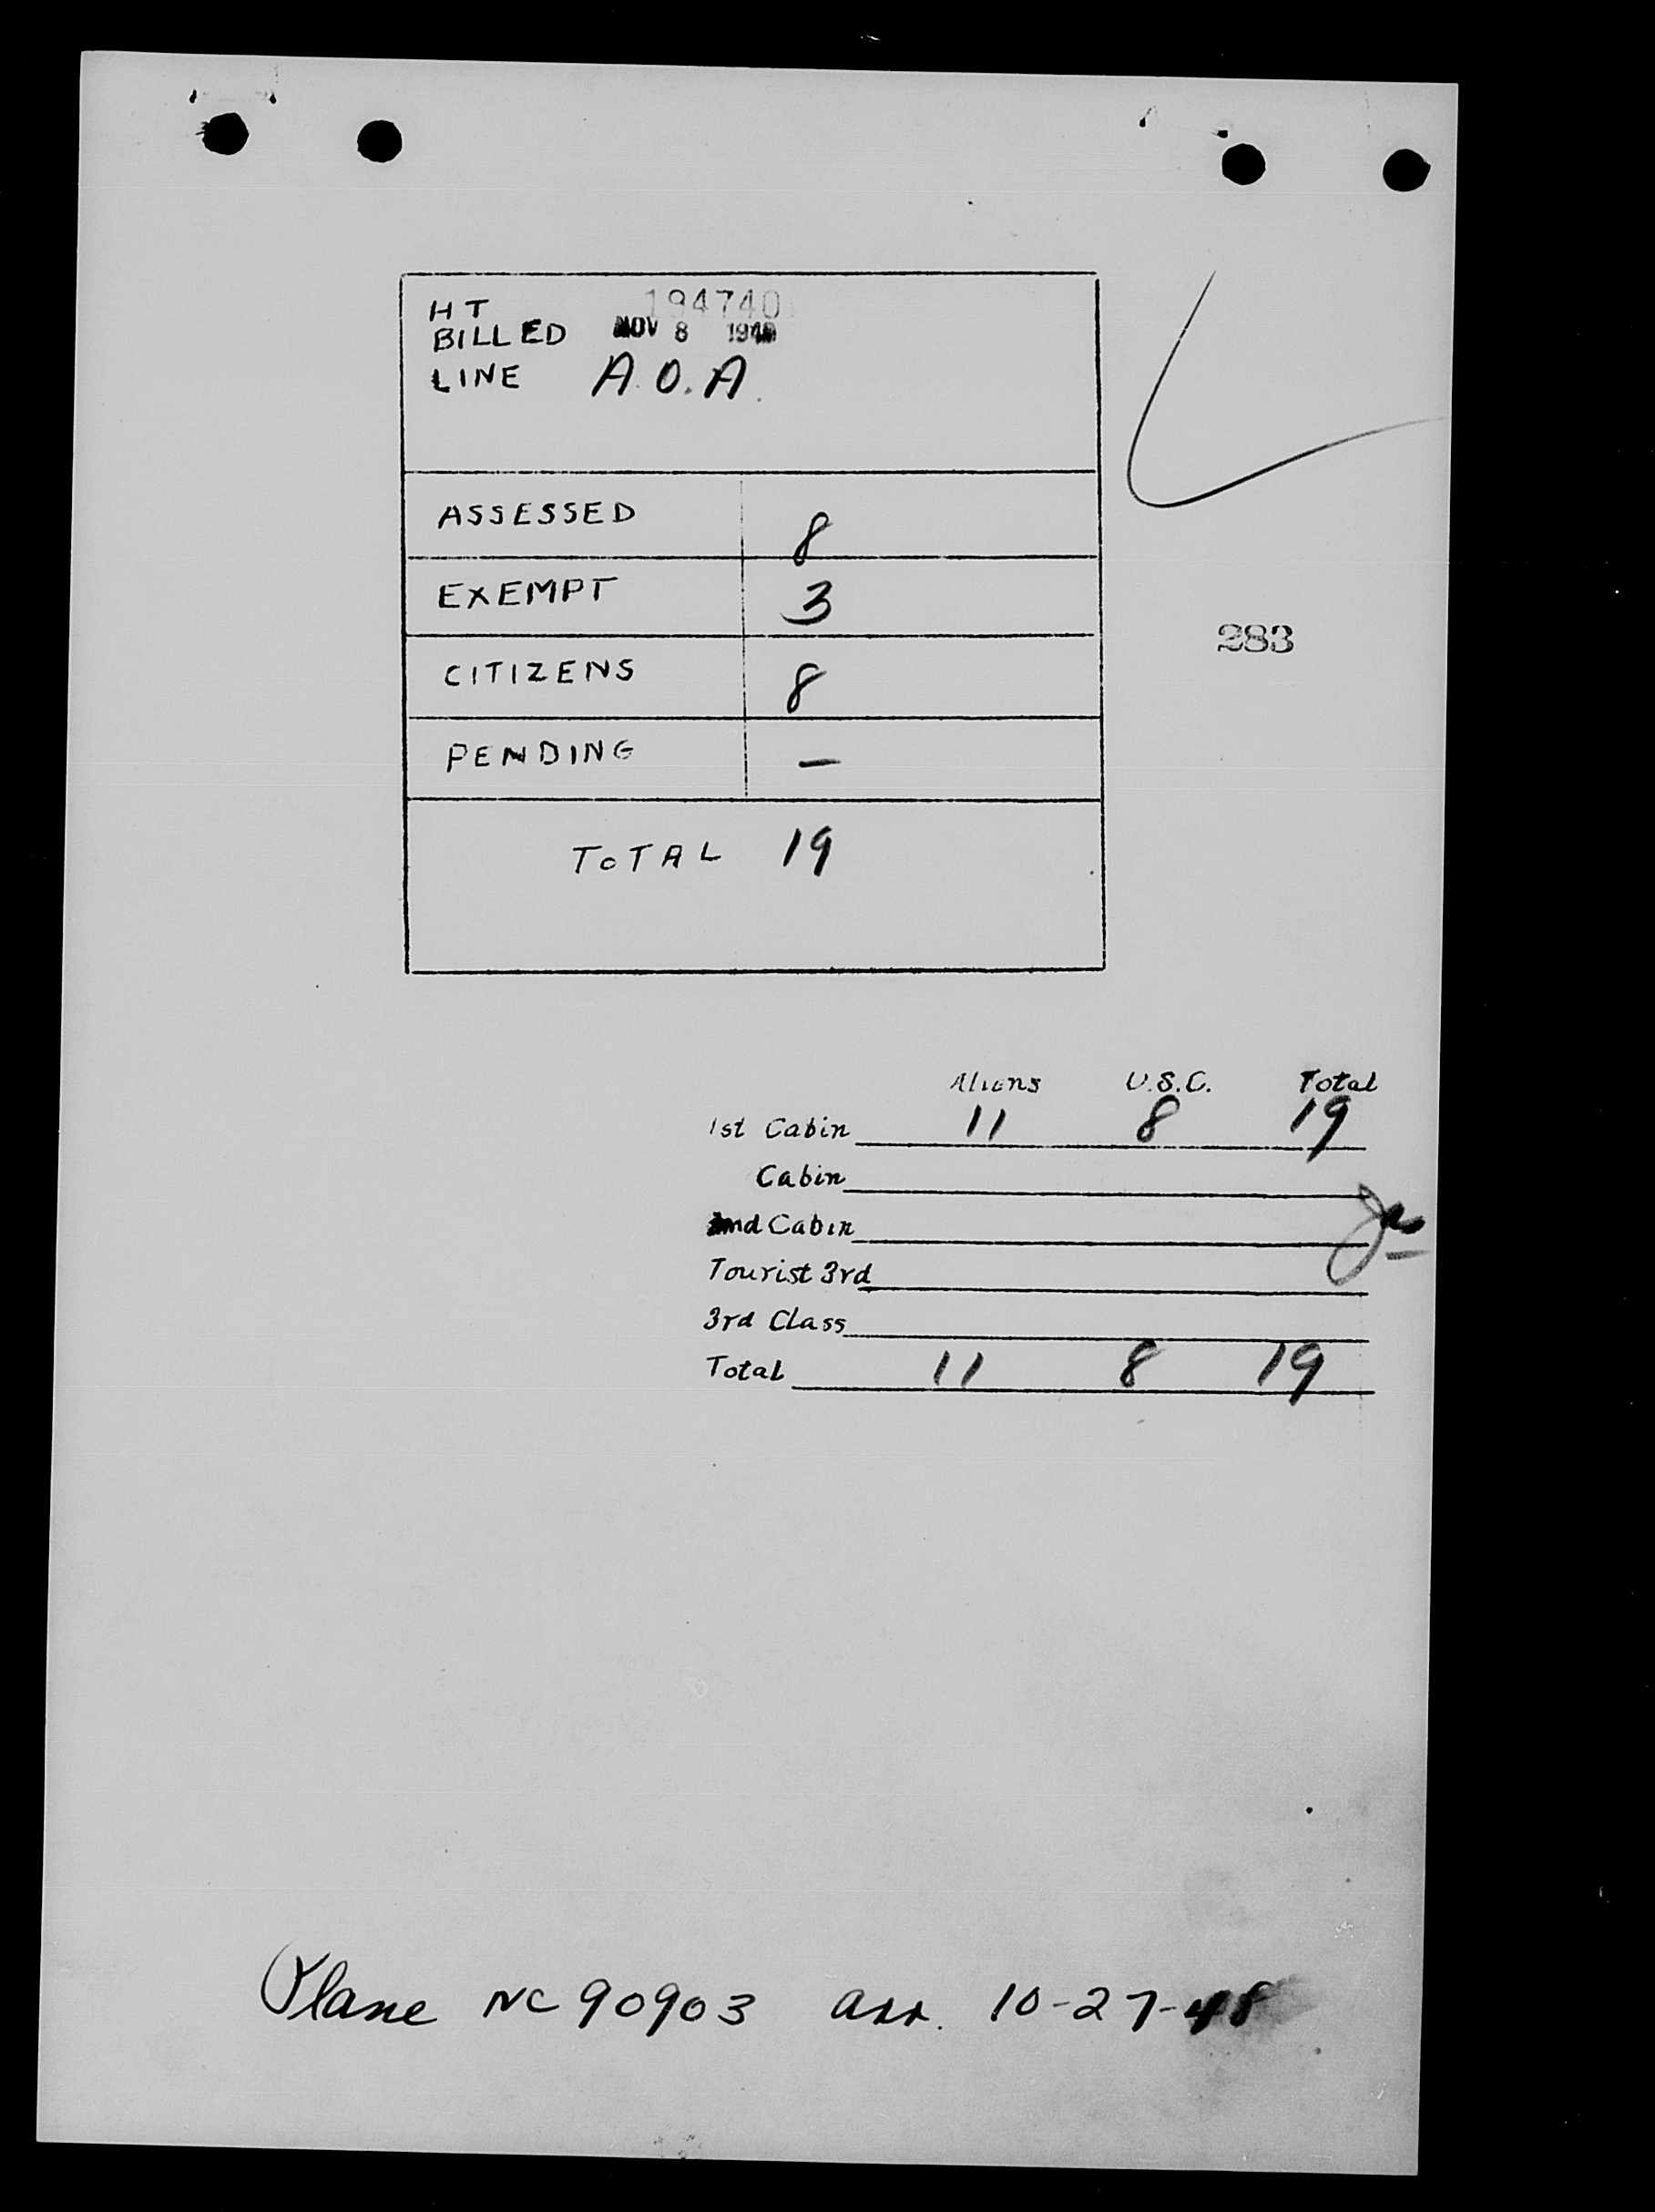 HT 194740
BILLED NOV 8 1948
LINE A.O.A.
ASSESSED 8
EXEMPT 3
283
CITIZENS 8
PENDING —
TOTAL 19
Aliens U.S.C. Total
1st Cabin 11 8 19
Cabin
2nd Cabin
Tourist 3rd
3rd Class
Total 11 8 19
Plane NC 90903 arr. 10-27-48